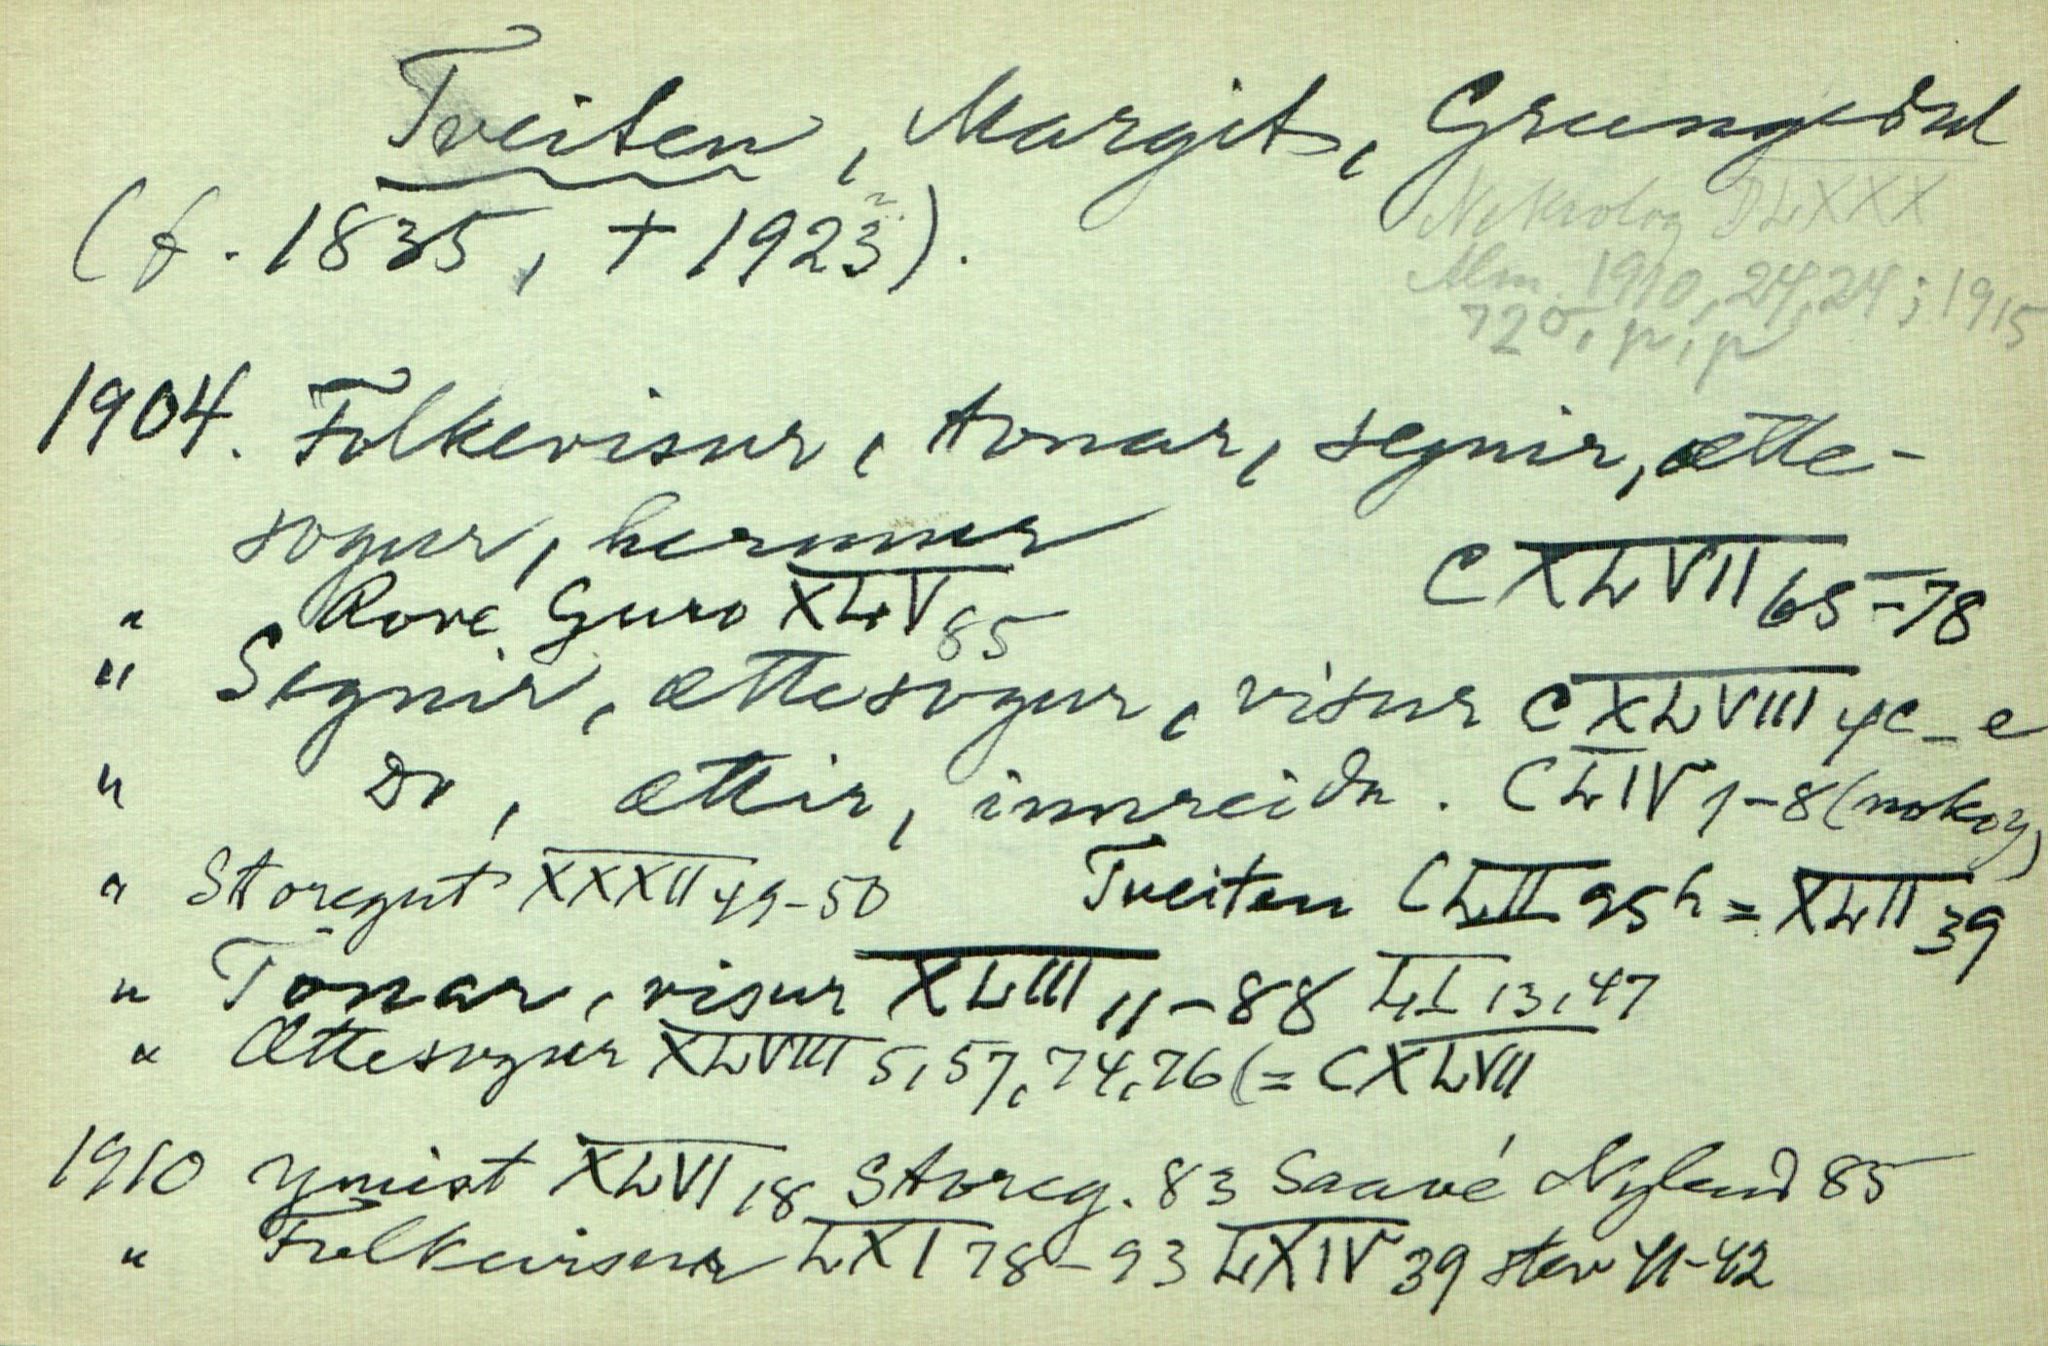 Tveiten, Margit, Grungedal
Nekrolog DLXXX
(f. 1835, + 1923).
Alm. 1910, 24, 24; 1915
72
1904. Folkevisur, tonar, segnir, ætte-
sogur, hermur CXLVII 65-78
" Rove Guro XLV 85
" Segnir, ættesogur, visur CXLVIII 4c-e
" Do, ættir, innreidn. CLIV 1-8 (nokor)
" Storegut XXXII 49-50 Tveiten CLII 95h = XLII 39
" Tonar, visur XLIII 11-88 LI 13, 47
" Ættesogur XLVIII 5, 57, 74, 76 (= CXLVII
1910 Ymist XLVI 18 Storeg. 83 Saavé Nyland 85
" Folkevisur LXI 78-93 LXIV 39 stev 41-42